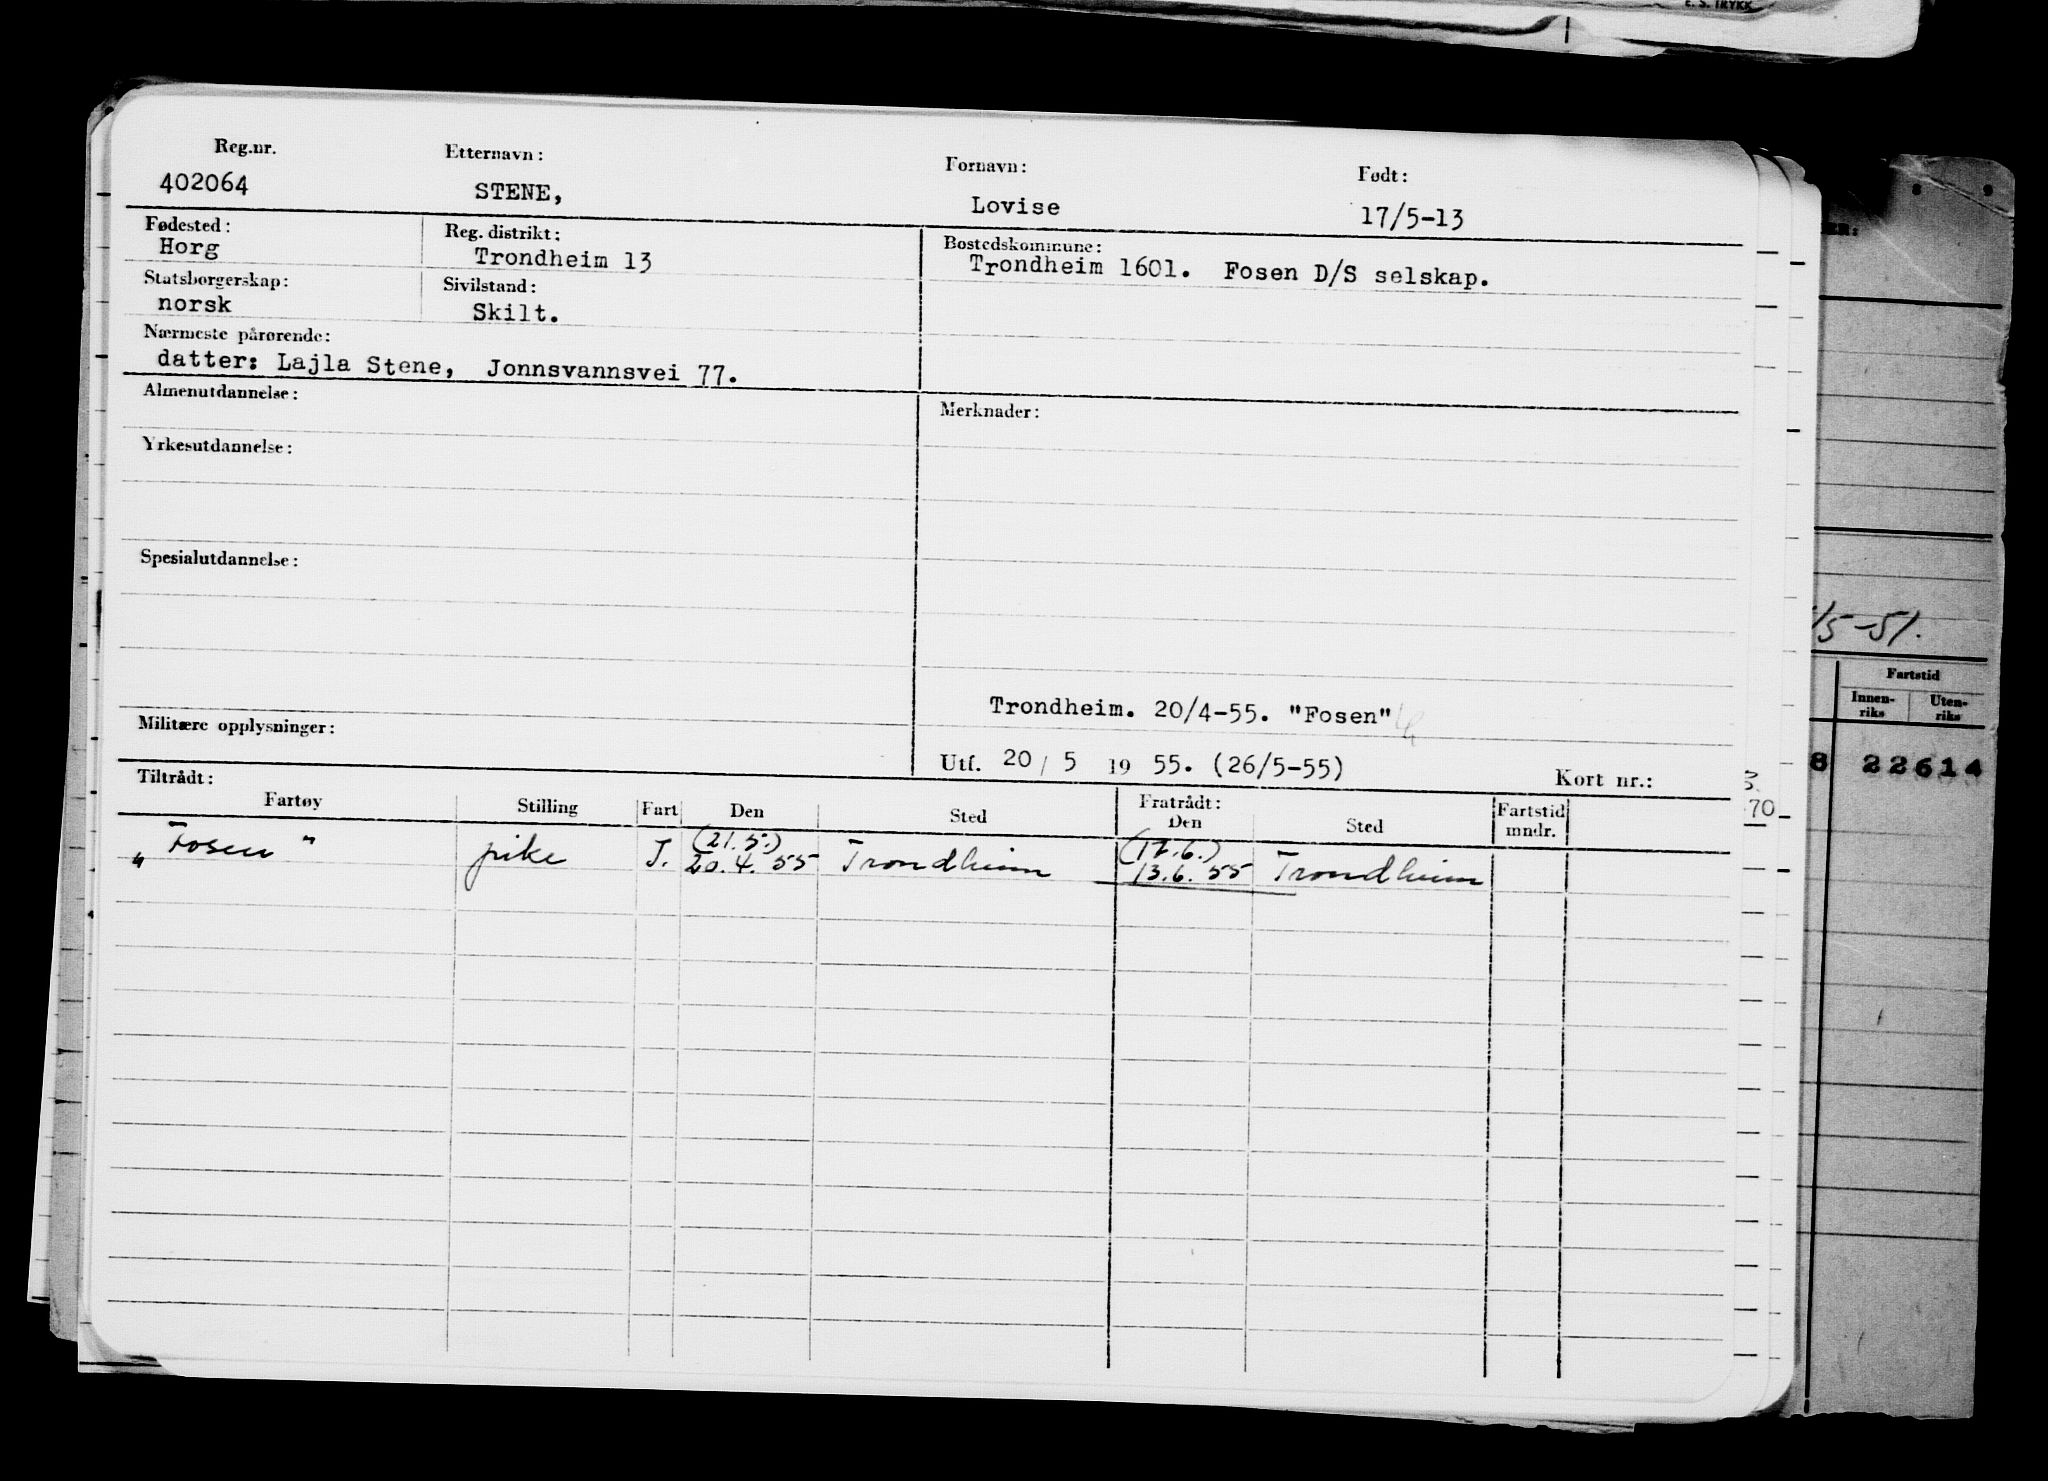 E. S. TRYKK
Reg.nr. Etternavn: Fornavn: Født:
402064 STENE, Lovise 17/5-13
Fødested: Reg. distrikt: Bostedskommune:
Horg Trondheim 13 Trondheim 1601. Fosen D/S selskap.
Statsborgerskap: Sivilstand:
norsk Skilt.
Nærmeste pårørende:
datter: Lajla Stene, Jonnsvannsvei 77.
Almenutdannelse: Merknader:
Yrkesutdannelse:
Spesialutdannelse:
Trondheim. 20/4-55. "Fosen"
Militære opplysninger:
Utf. 20 / 5 19 55. (26/5-55) Kort nr.:
Tiltrådt: Fratrådt:
Fartøy Stilling Fart Den Sted Den Sted Fartstid mndr.
(21.5.) (12.6.)
"Fosen" pike I. 20.4.55 Trondheim 13.6.55 Trondheim
/5-51.
Fartstid
Innen-riks Uten-riks
8 22614
3.
70